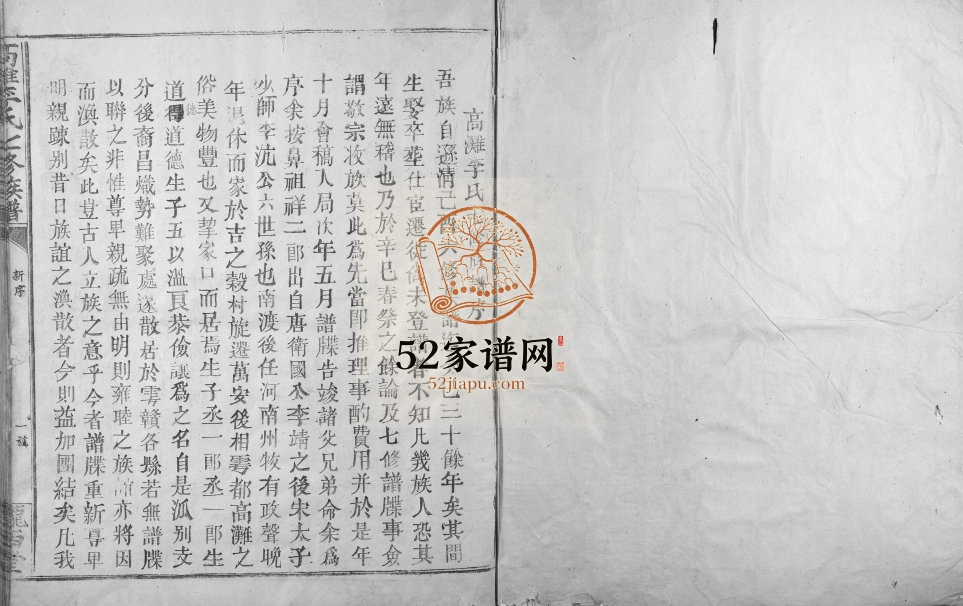 高灘李氏
吾族自遜清己酉六修譜 已三十餘年矣其間
生娶卒塟仕宦遷徙尚未登譜者不知凡幾族人恐其
年遠無稽也乃於辛巳春祭之餘論及七修譜牒事僉
謂敬宗收族莫此爲先當即推理事酌費用并於是年
十月會稿人局次年五月譜牒告竣諸父兄弟命余爲
序余按鼻祖祥二郎出自唐衛國公李靖之後宋太子
少師李沆公六世孫也南渡後任河南州牧有政聲晚
年退休而家於吉之穀村旋遷萬安後相雩都高灘之
俗美物豐也又挈家口而居焉生子丞一郎丞一郎生
道得道德生子五以溫良恭儉讓爲之名自是派別支
德
分後裔昌熾勢難聚處遂散居於雩贛各縣若無譜牒
以聯之非惟尊卑親疏無由明則雍睦之族 亦將因
而渙散矣此豈古人立族之意乎今者譜牒重新尊卑
明親疎别昔日族誼之渙散者今則益加團結矣凡我
李氏七修族譜
新序
一號
隴西堂
52家谱网
52jiapu.com